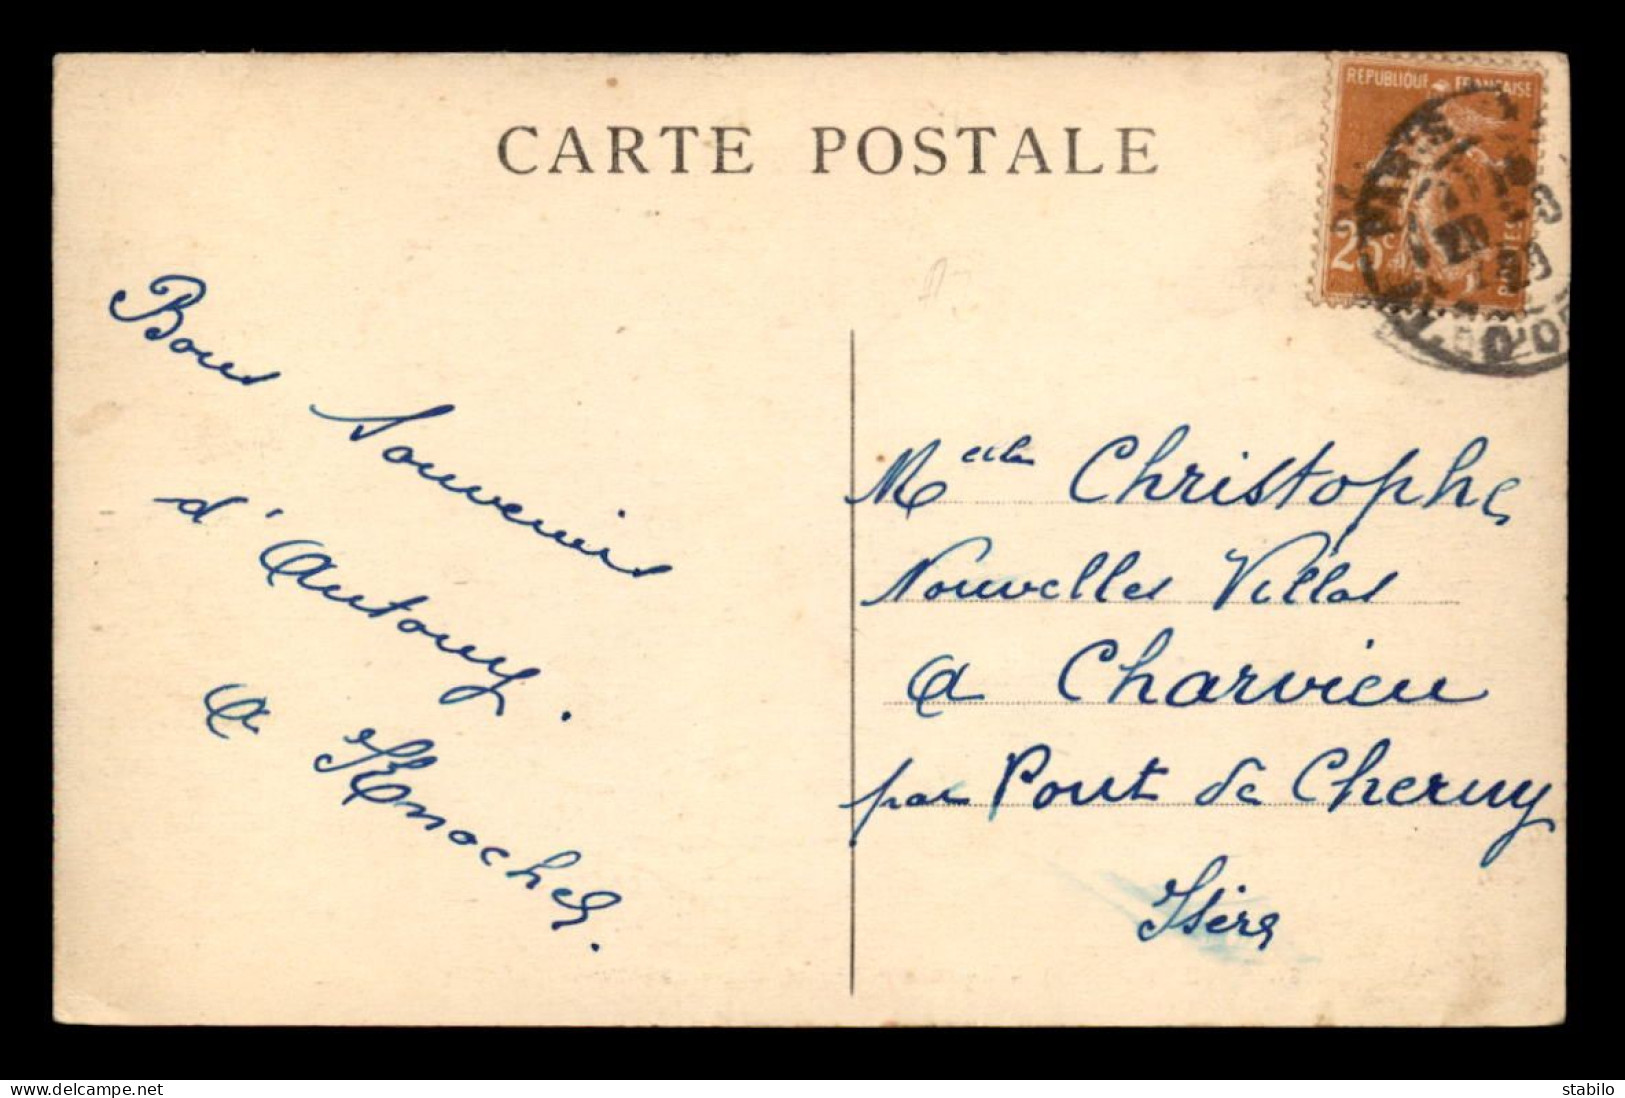 CARTE POSTALE
REPUBLIQUE FRANÇAISE
25c
POSTES
PARIS
Bons Souvenirs
d'Antony.
A Knoche
Melle Christophe
Nouvelles Villas
a Charvieu
par Pont de Cheruy
Isère
delcampe.net
stabilo